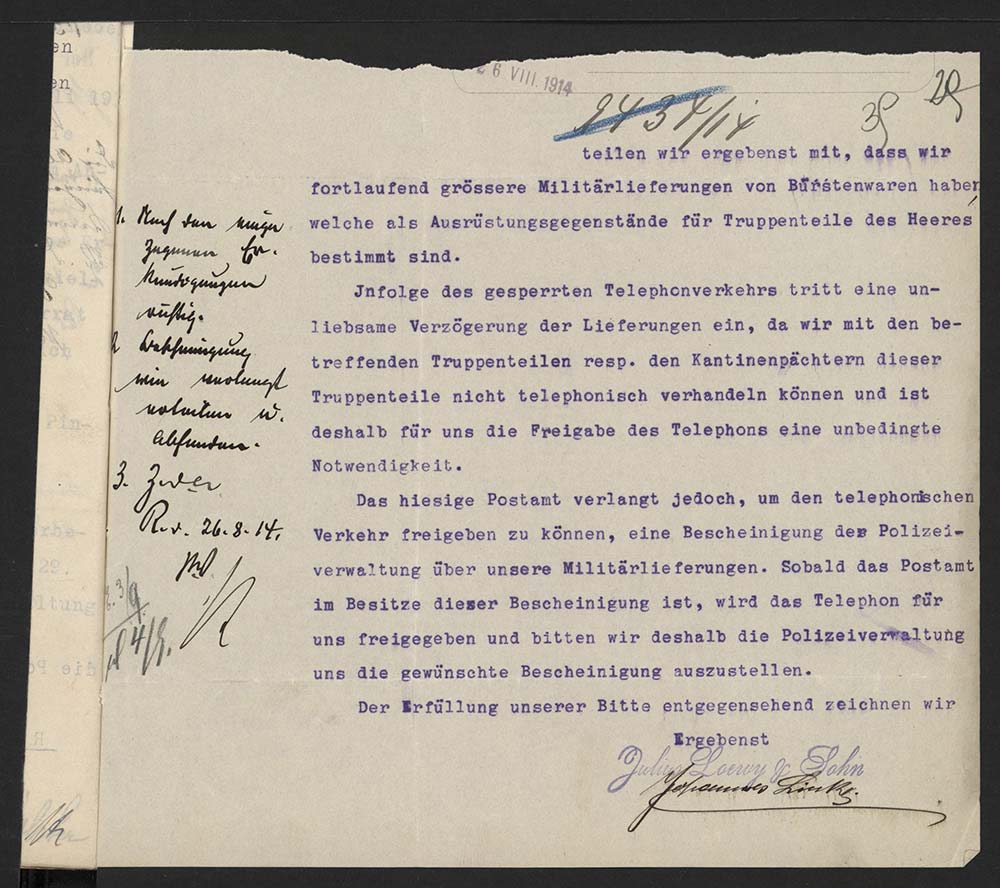 26 VIII. 1914
2434/14
35
25
teilen wir ergebenst mit, dass wir
fortlaufend grössere Militärlieferungen von Bürstenwaren haben,
welche als Ausrüstungsgegenstände für Truppenteile des Heeres
bestimmt sind.
Jnfolge des gesperrten Telephonverkehrs tritt eine un-
liebsame Verzögerung der Lieferungen ein, da wir mit den be-
treffenden Truppenteilen resp. den Kantinenpächtern dieser
Truppenteile nicht telephonisch verhandeln können und ist
deshalb für uns die Freigabe des Telephons eine unbedingte
Notwendigkeit.
Das hiesige Postamt verlangt jedoch, um den telephonischen
Verkehr freigeben zu können, eine Bescheinigung der Polizei-
verwaltung über unsere Militärlieferungen. Sobald das Postamt
im Besitze dieser Bescheinigung ist, wird das Telephon für
uns freigegeben und bitten wir deshalb die Polizeiverwaltung
uns die gewünschte Bescheinigung auszustellen.
Der Erfüllung unserer Bitte entgegensehend zeichnen wir
Ergebenst
Julius Loewy & Sohn
Johannes Linke
1. Nach den einge
zogenen Er-
kundigungen
richtig.
2. Bescheinigung
wie verlangt
erteilen u.
absenden.
3. Z. d. A.
R. d. 26.8.14.
3/9
4/9.
en
en